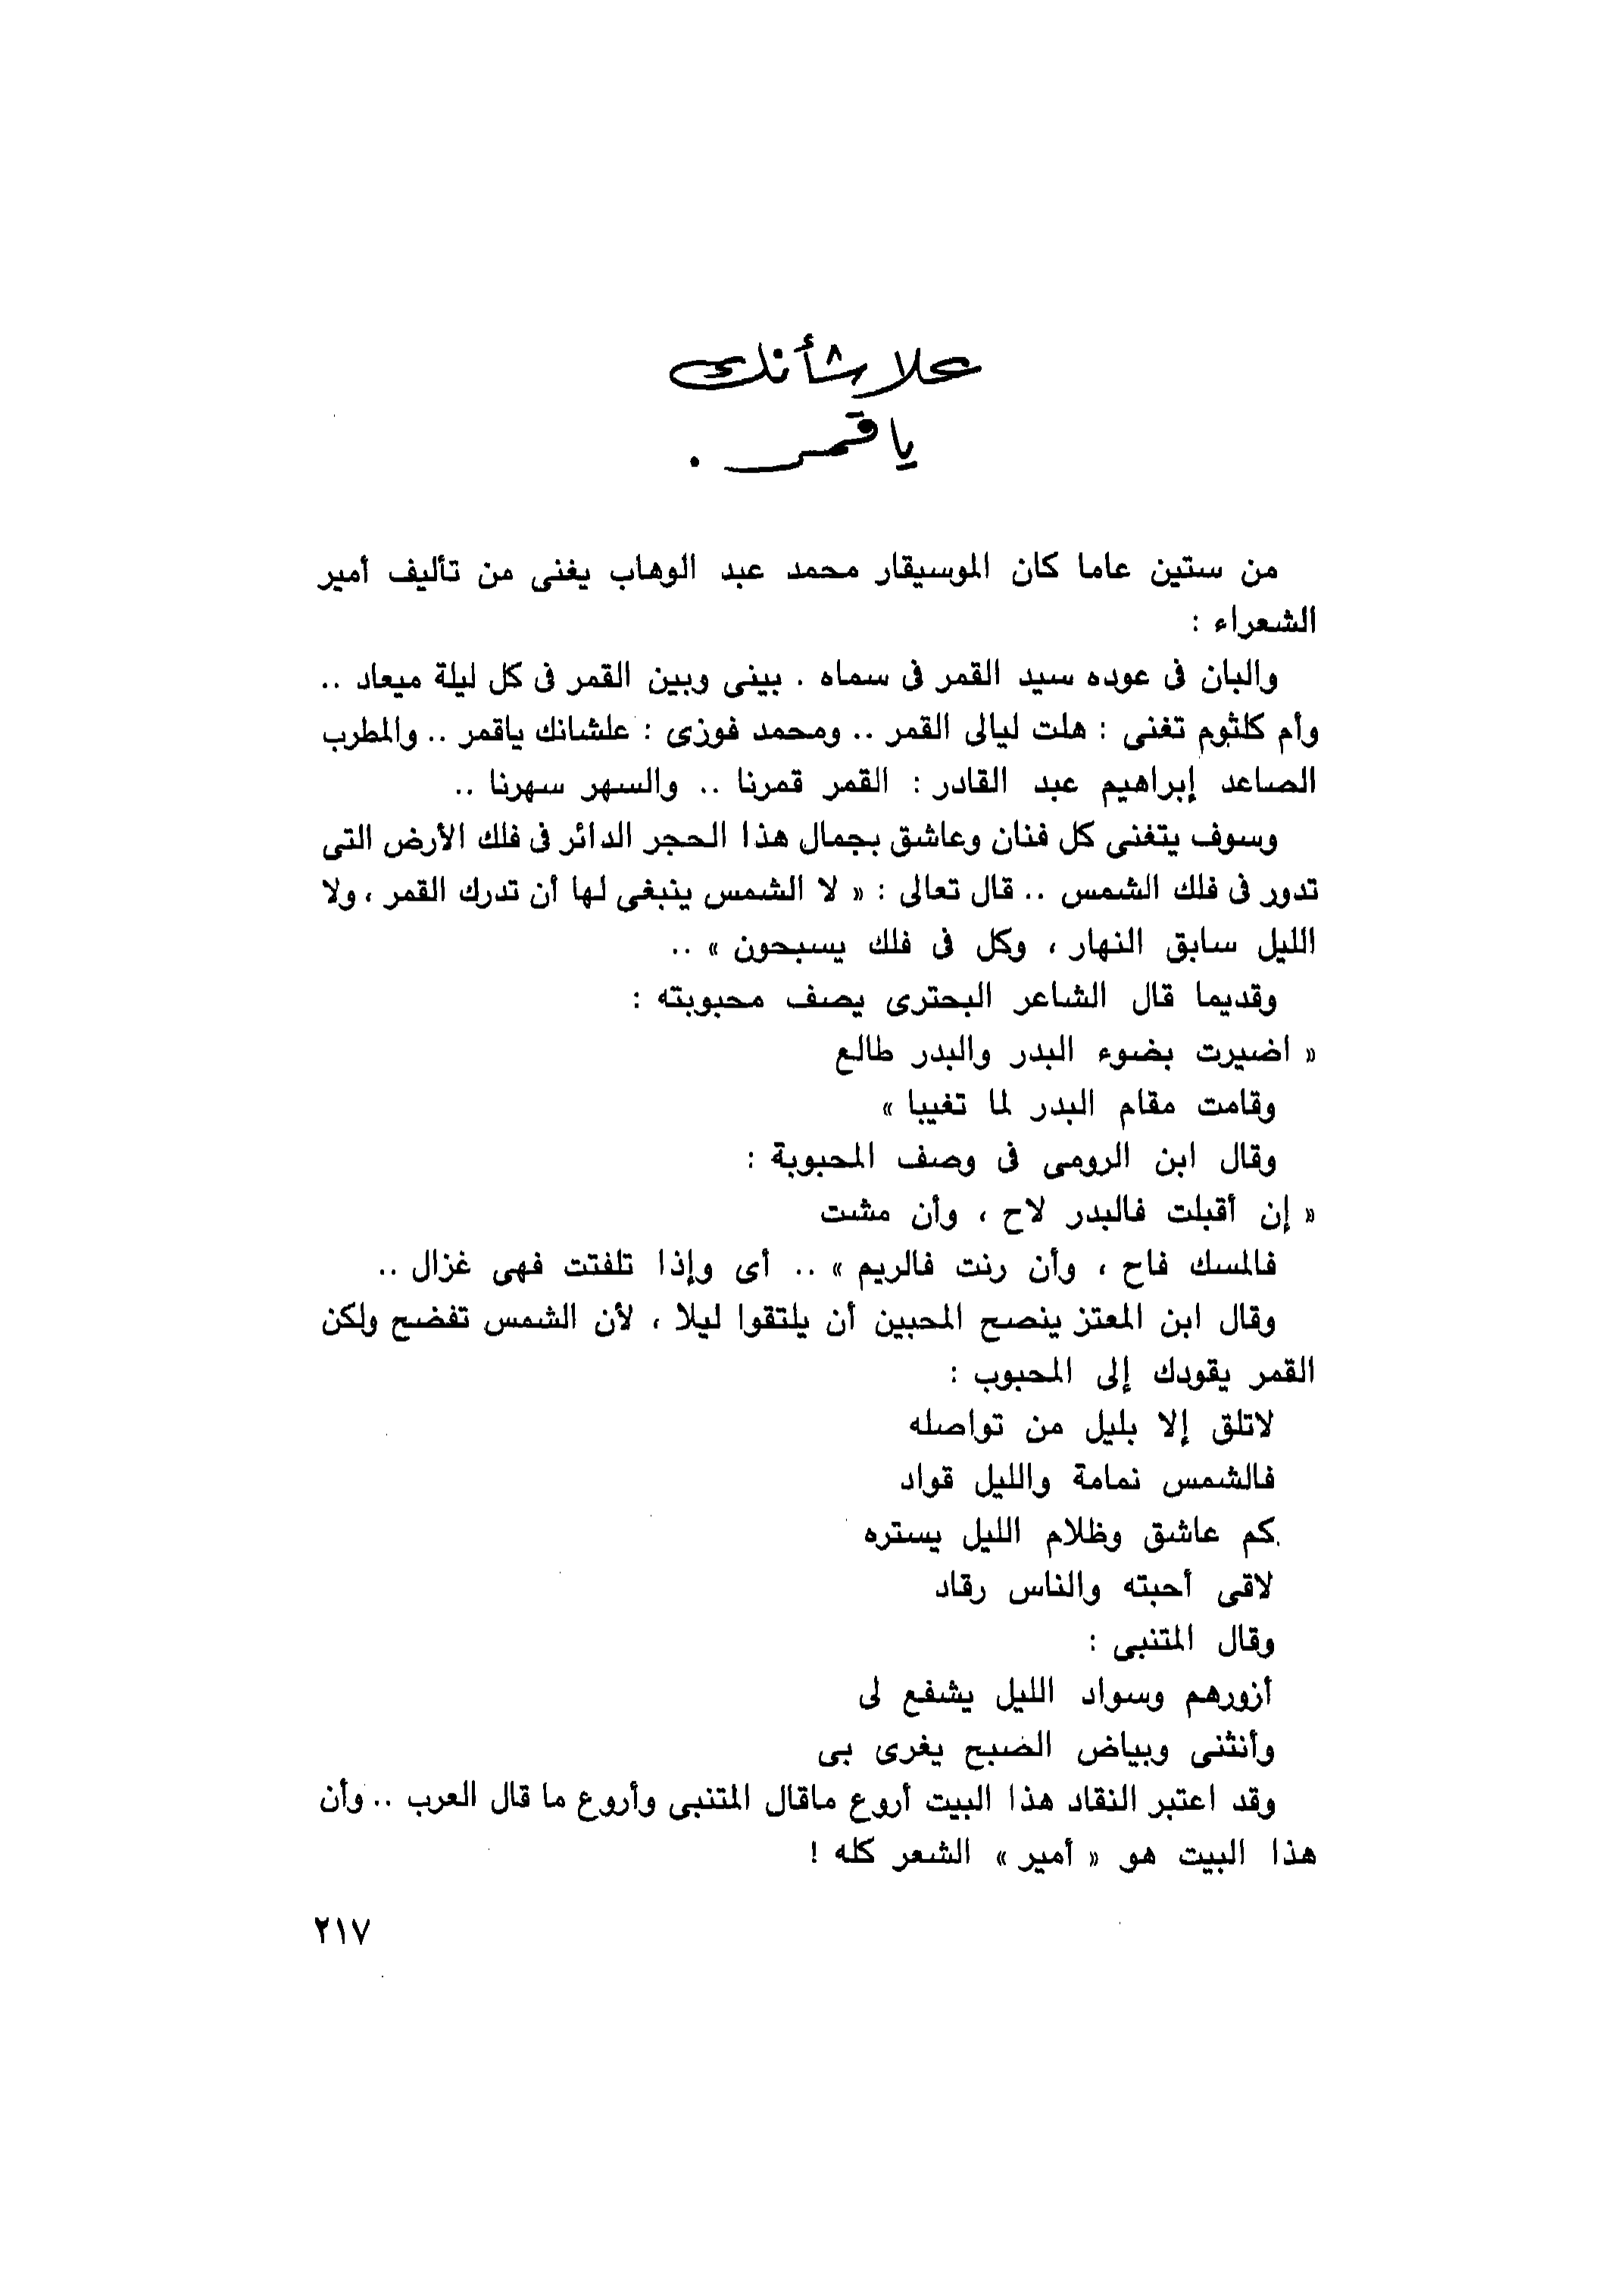 علا شأنك
يا قمر .
من ستين عاما كان الموسيقار محمد عبد الوهاب يغنى من تأليف أمير
الشعراء :
والبان فى عوده سيد القمر فى سماه . بينى وبين القمر فى كل ليلة ميعاد ..
وأم كلثوم تغنى : هلت ليالى القمر .. ومحمد فوزى : علشانك ياقمر .. والمطرب
الصاعد إبراهيم عبد القادر : القمر قمرنا .. والسهر سهرنا ..
وسوف يتغنى كل فنان وعاشق بجمال هذا الحجر الدائر فى فلك الأرض التى
تدور فى فلك الشمس .. قال تعالى : « لا الشمس ينبغى لها أن تدرك القمر ، ولا
الليل سابق النهار ، وكل فى فلك يسبحون » ..
وقديما قال الشاعر البحترى يصف محبوبته :
« اضيرت بضوء البدر والبدر طالع
وقامت مقام البدر لما تغيبا »
وقال ابن الرومى فى وصف المحبوبة :
« إن أقبلت فالبدر لاح ، وأن مشت
فالمسك فاح ، وأن رنت فالريم » .. أى وإذا تلفتت فهى غزال ..
وقال ابن المعتز ينصح المحبين أن يلتقوا ليلا ، لأن الشمس تفضح ولكن
القمر يقودك إلى المحبوب :
لاتلق إلا بليل من تواصله
فالشمس نمامة والليل قواد
كم عاشق وظلام الليل يستره
لاقى أحبته والناس رقاد
وقال المتنبى :
أزورهم وسواد الليل يشفع لى
وأنثنى وبياض الصبح يغرى بى
وقد اعتبر النقاد هذا البيت أروع ماقال المتنبى وأروع ما قال العرب .. وأن
هذا البيت هو « أمير » الشعر كله !
٢١٧